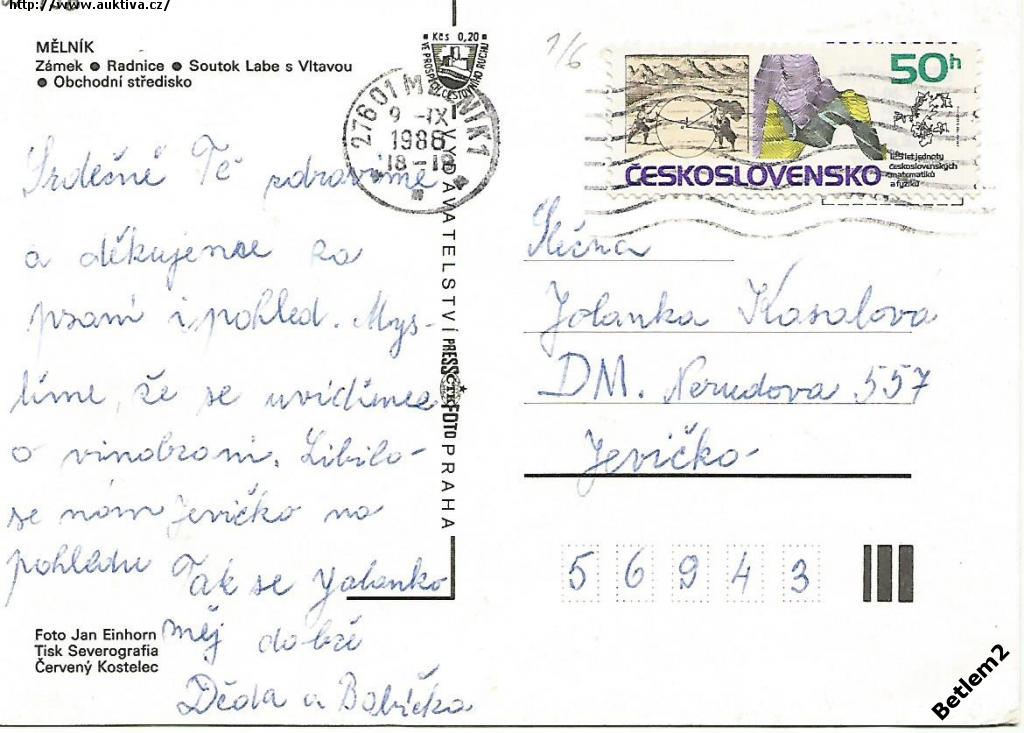 http://www.auktiva.cz/
MĚLNÍK
Zámek ● Radnice ● Soutok Labe s Vltavou
● Obchodní středisko
Srdečně Tě zdravíme
a děkujeme za
psaní i pohled. Mys-
líme, že se uvidíme
o vinobraní. Líbilo-
se nám Jevíčko na
pohledu Tak se Jolanko
měj dobře
Děda a Babička
Foto Jan Einhorn
Tisk Severografia
Červený Kostelec
VYDAVATELSTVÍ PRESSFOTO PRAHA
ČTK
Kčs 0,20
VE PROSPĚCH CESTOVNÍHO RUCHU
276 01 MĚLNÍK 1
9.-IX
1988
18-19
1/6
50h
125 let jednoty
československých
matematiků
a fyziků
ČESKOSLOVENSKO
Slečna
Jolanka Kasalova
DM. Nerudova 557
Jevíčko
5 6 9 4 3
Betlem2